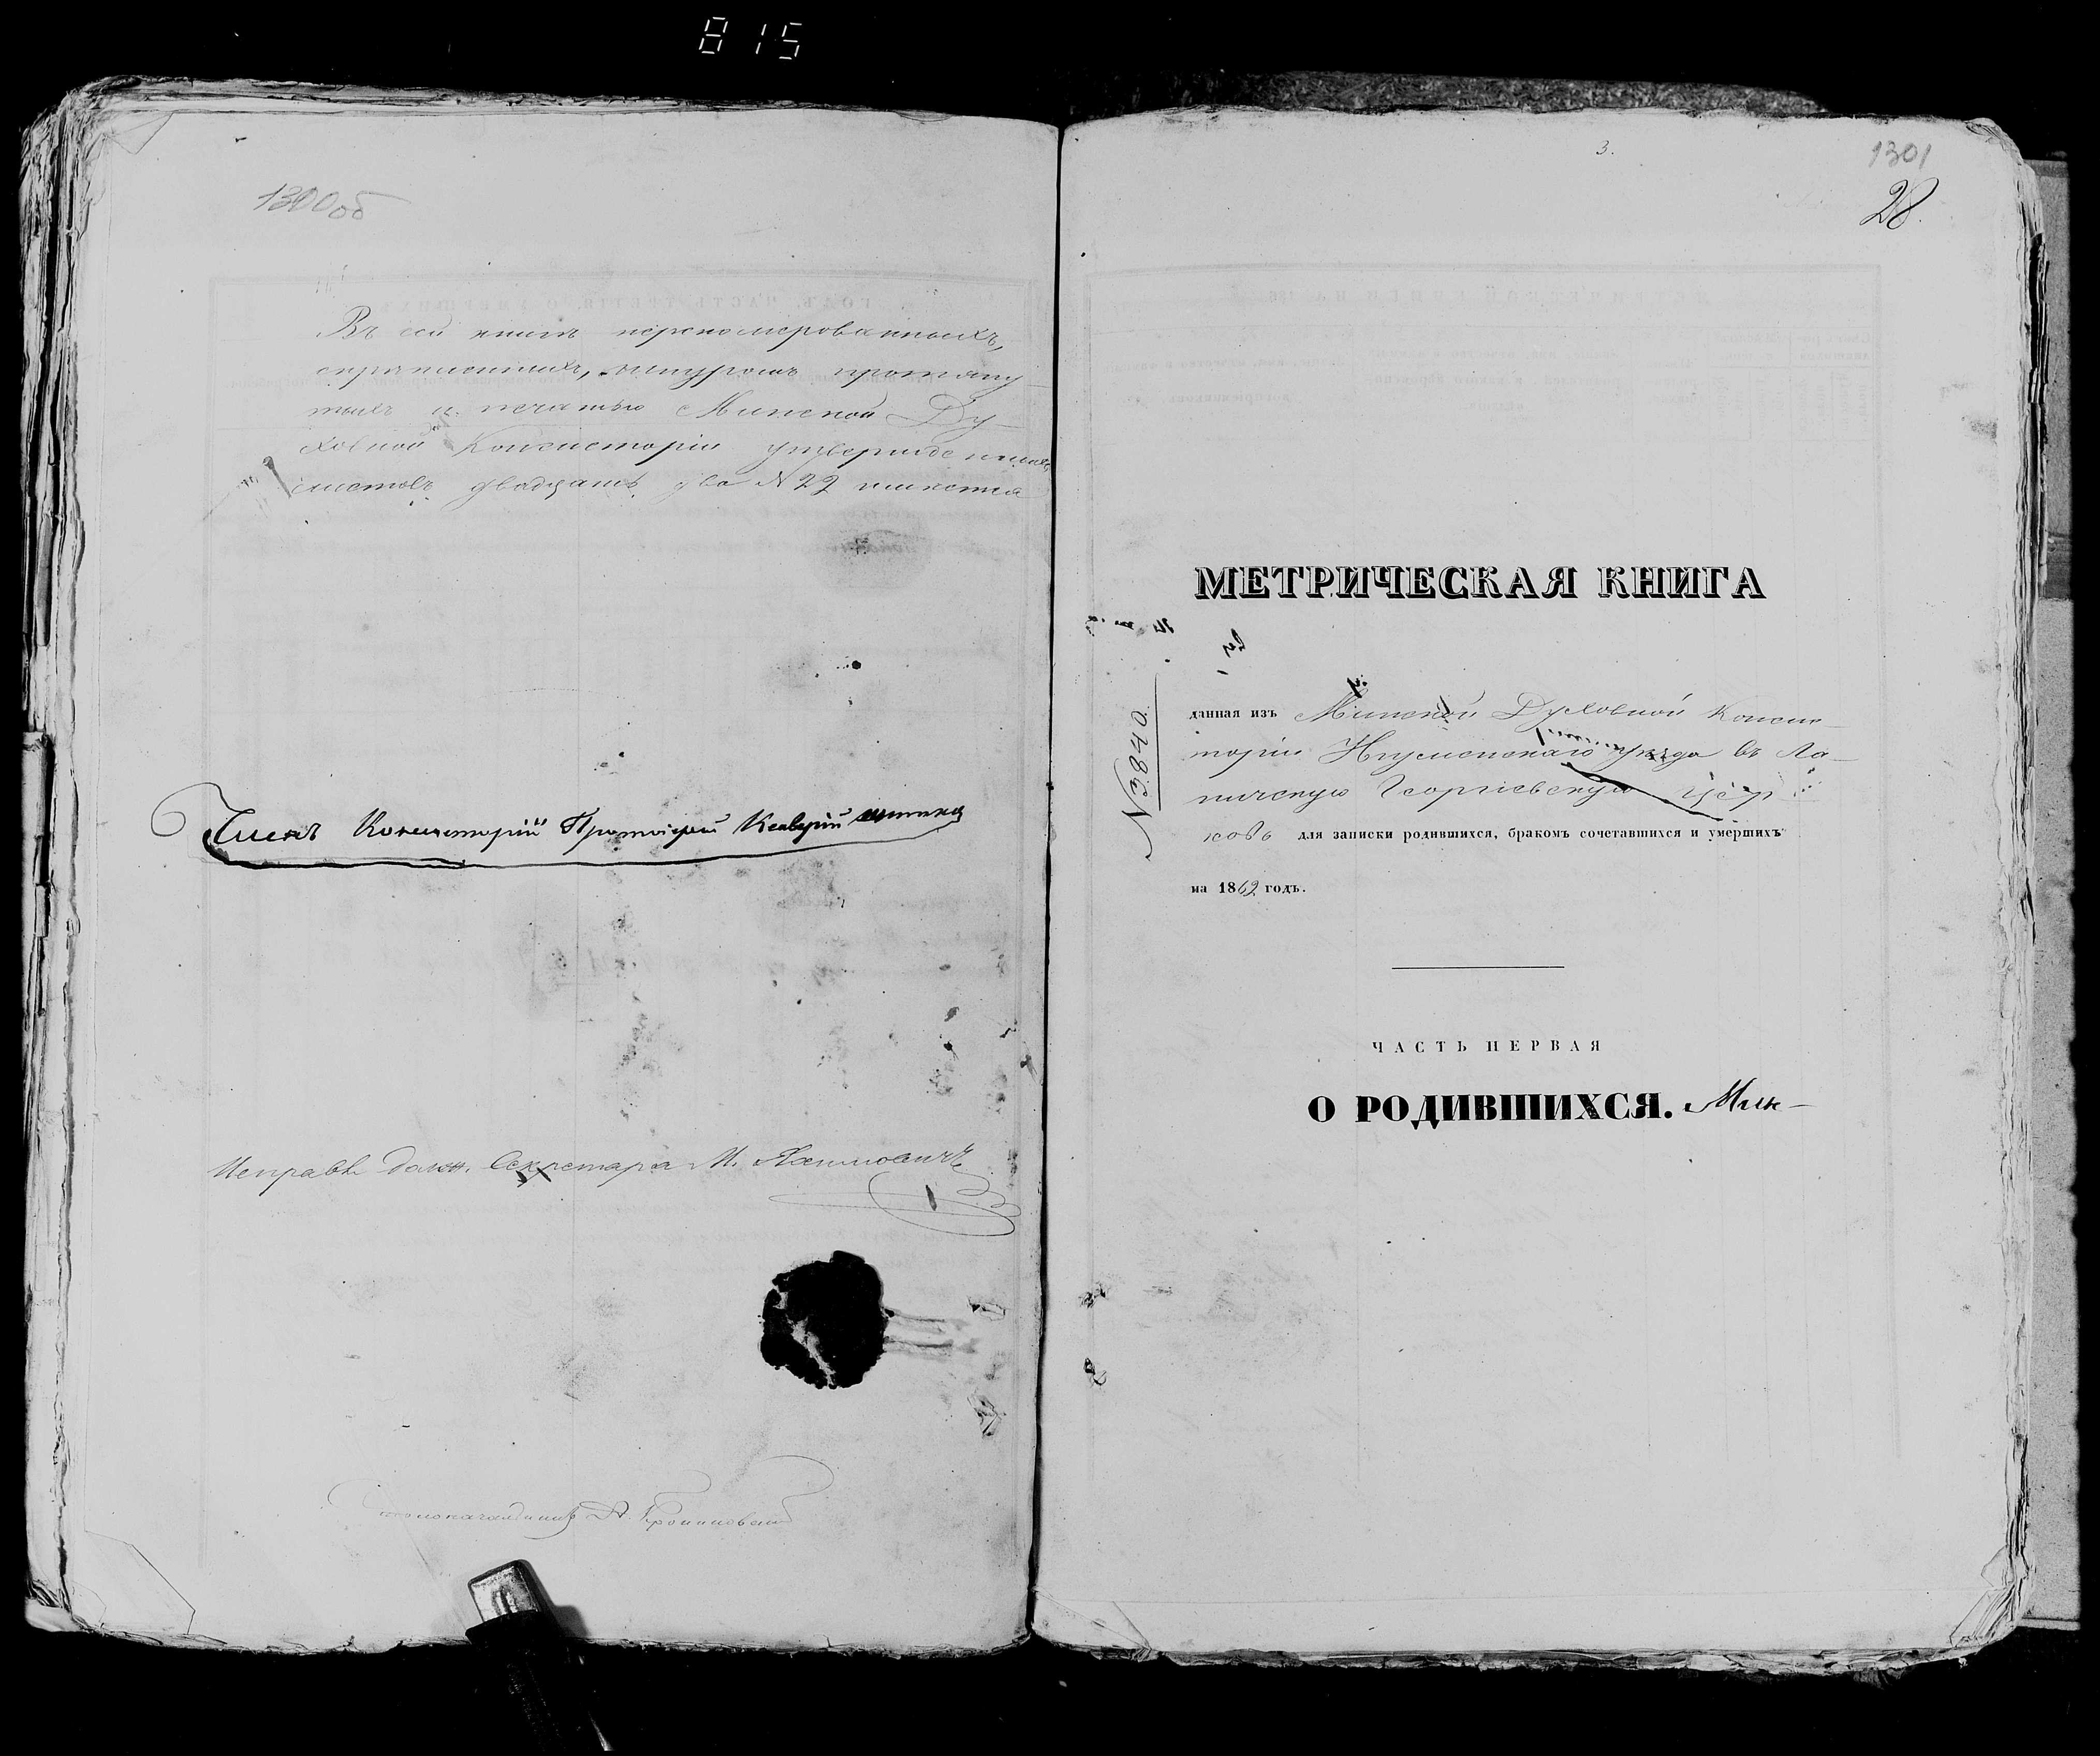 815
1300об
Въ сей книгѣ перенумерованныхъ,
скрѣпленныхъ, шнуромъ протяну-
тыхъ и печатью Минской Ду-
ховной Консисторіи утвержденныхъ
листовъ двадцать два №22 имѣется
Членъ Консисторіи Протоіерей
Исправл. долж. Секретаря М.
Столоначальникъ А.
3.
1301
28.
МЕТРИЧЕСКАЯ КНИГА
№3840
данная изъ Минской Духовной Консис-
торіи Игуменскаго уѣзда въ Ла-
пичскую Георгіевскую цер-
ковь для записки родившихся, бракомъ сочетавшихся и умершихъ
на 1862 годъ.
ЧАСТЬ ПЕРВАЯ
О РОДИВШИХСЯ.